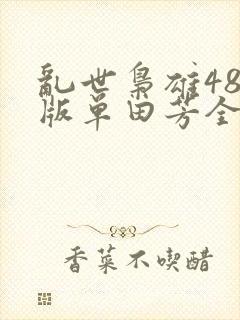 亂世梟雄48
版單田芳全
香菜不喫醋